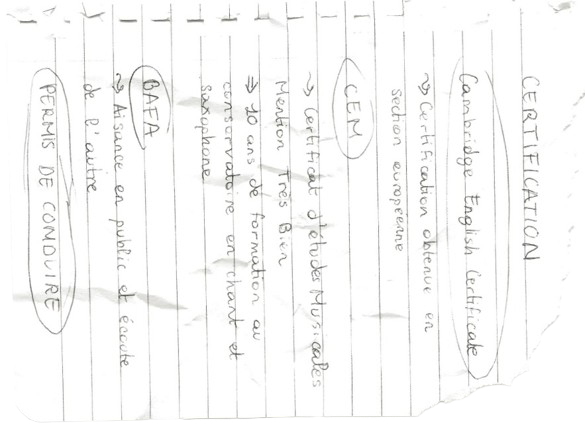 CERTIFICATION
Cambridge English Certificate
~> Certification obtenue en
section européenne
CEM
~> Certificat d'études Musicales
Mention Très Bien
=> 10 ans de formation au
conservatoire en chant et
saxophone
BAFA
~> Aisance en public et écoute
de l'autre
PERMIS DE CONDUIRE